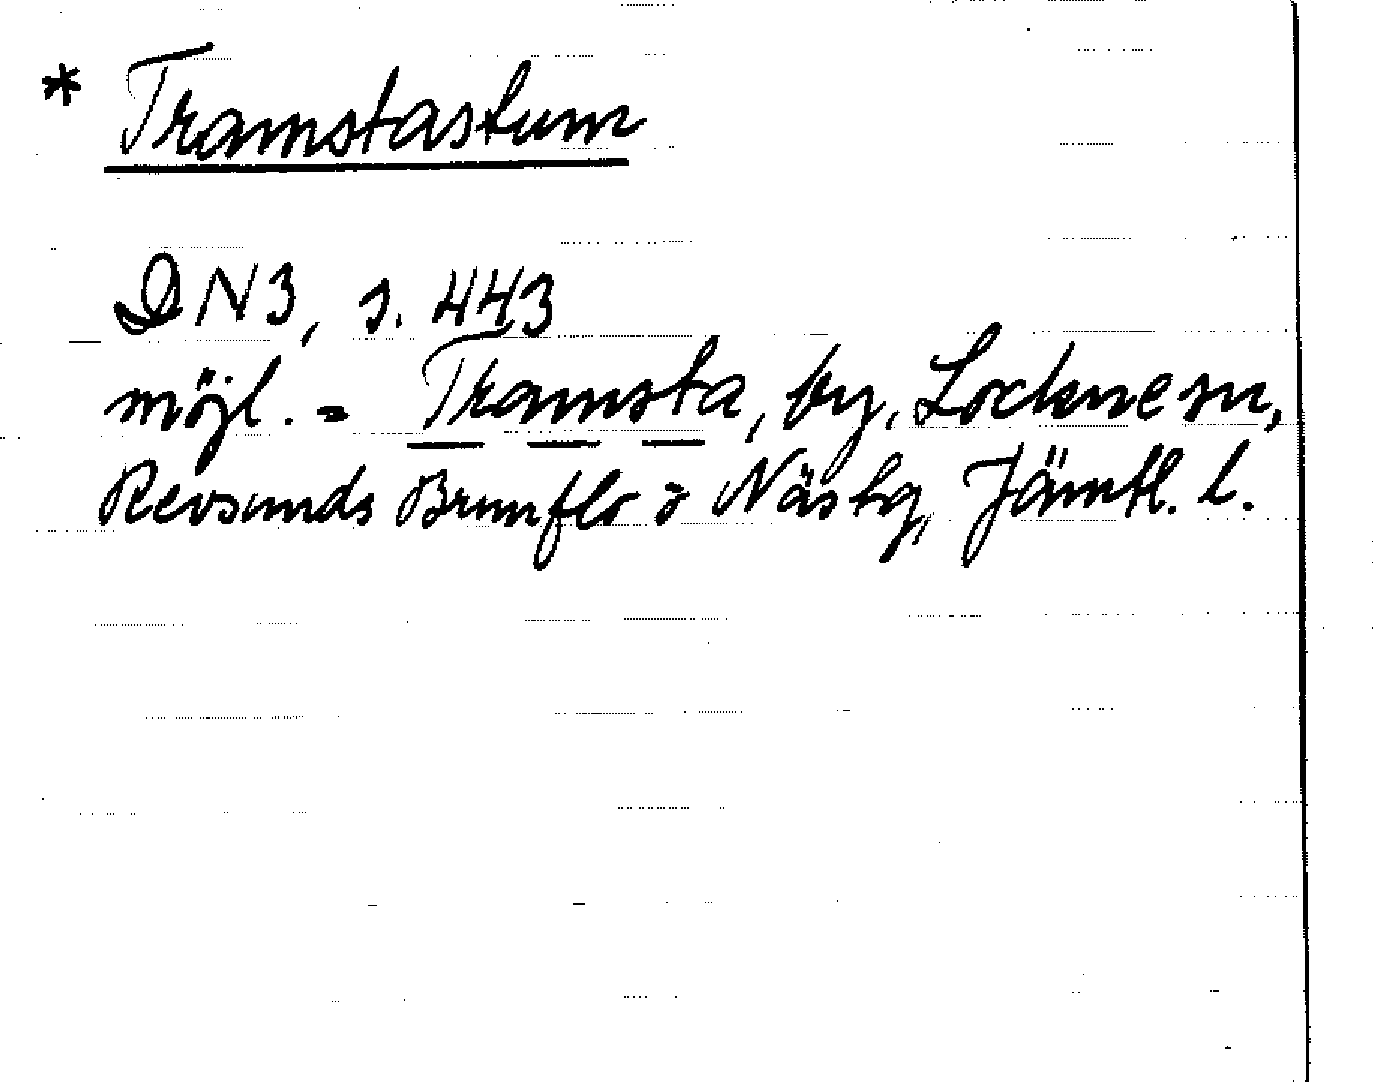 * Tramstastum
DN3, s. 443
möjl. = Tramsta, by, Lockne sn,
Revsunds Brunflo o Näs tg, Jämtl. l.